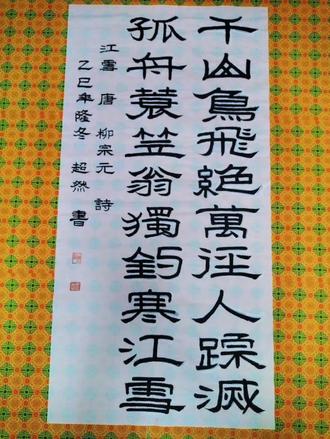 千山鳥飛絕萬徑人蹤滅
孤舟蓑笠翁獨釣寒江雪
江雪 唐 柳宗元 詩
乙巳年隆冬 超然 書